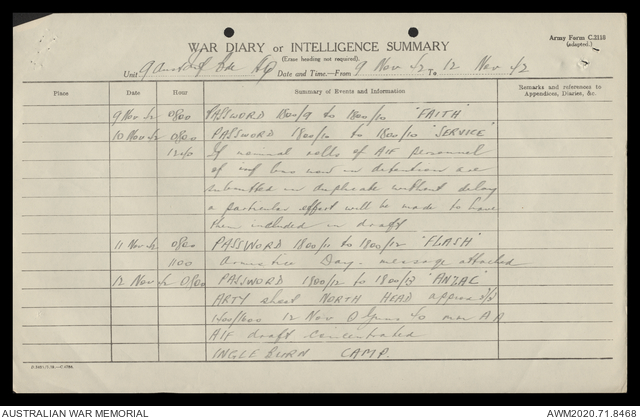 Army Form C.2118
(adapted.)
WAR DIARY or INTELLIGENCE SUMMARY
(Erase heading not required).
Unit 9 Aust Inf Bde HQ Date and Time.—From 9 Nov 42 To 12 Nov 42
Place Date Hour Summary of Events and Information Remarks and references to Appendices, Diaries, &c.
9 Nov 42 0800 PASSWORD 1800/9 to 1800/10 "FAITH"
10 Nov 42 0800 PASSWORD 1800/10 to 1800/10 "SERVICE"
If nominal rolls of AIF personnel
of inf bns now in detention are
submitted in duplicate without delay
a particular effort will be made to have
them included in draft
11 Nov 42 0800 PASSWORD 1800/11 to 1800/12 "FLASH"
1100 Armistice Day. message attached
12 Nov 42 0800 PASSWORD 1800/12 to 1800/13 "ANZAC"
ARTY shoot NORTH HEAD
1400/1600 12 Nov
AIF draft concentrated
INGLEBURN CAMP
AUSTRALIAN WAR MEMORIAL AWM2020.71.8468